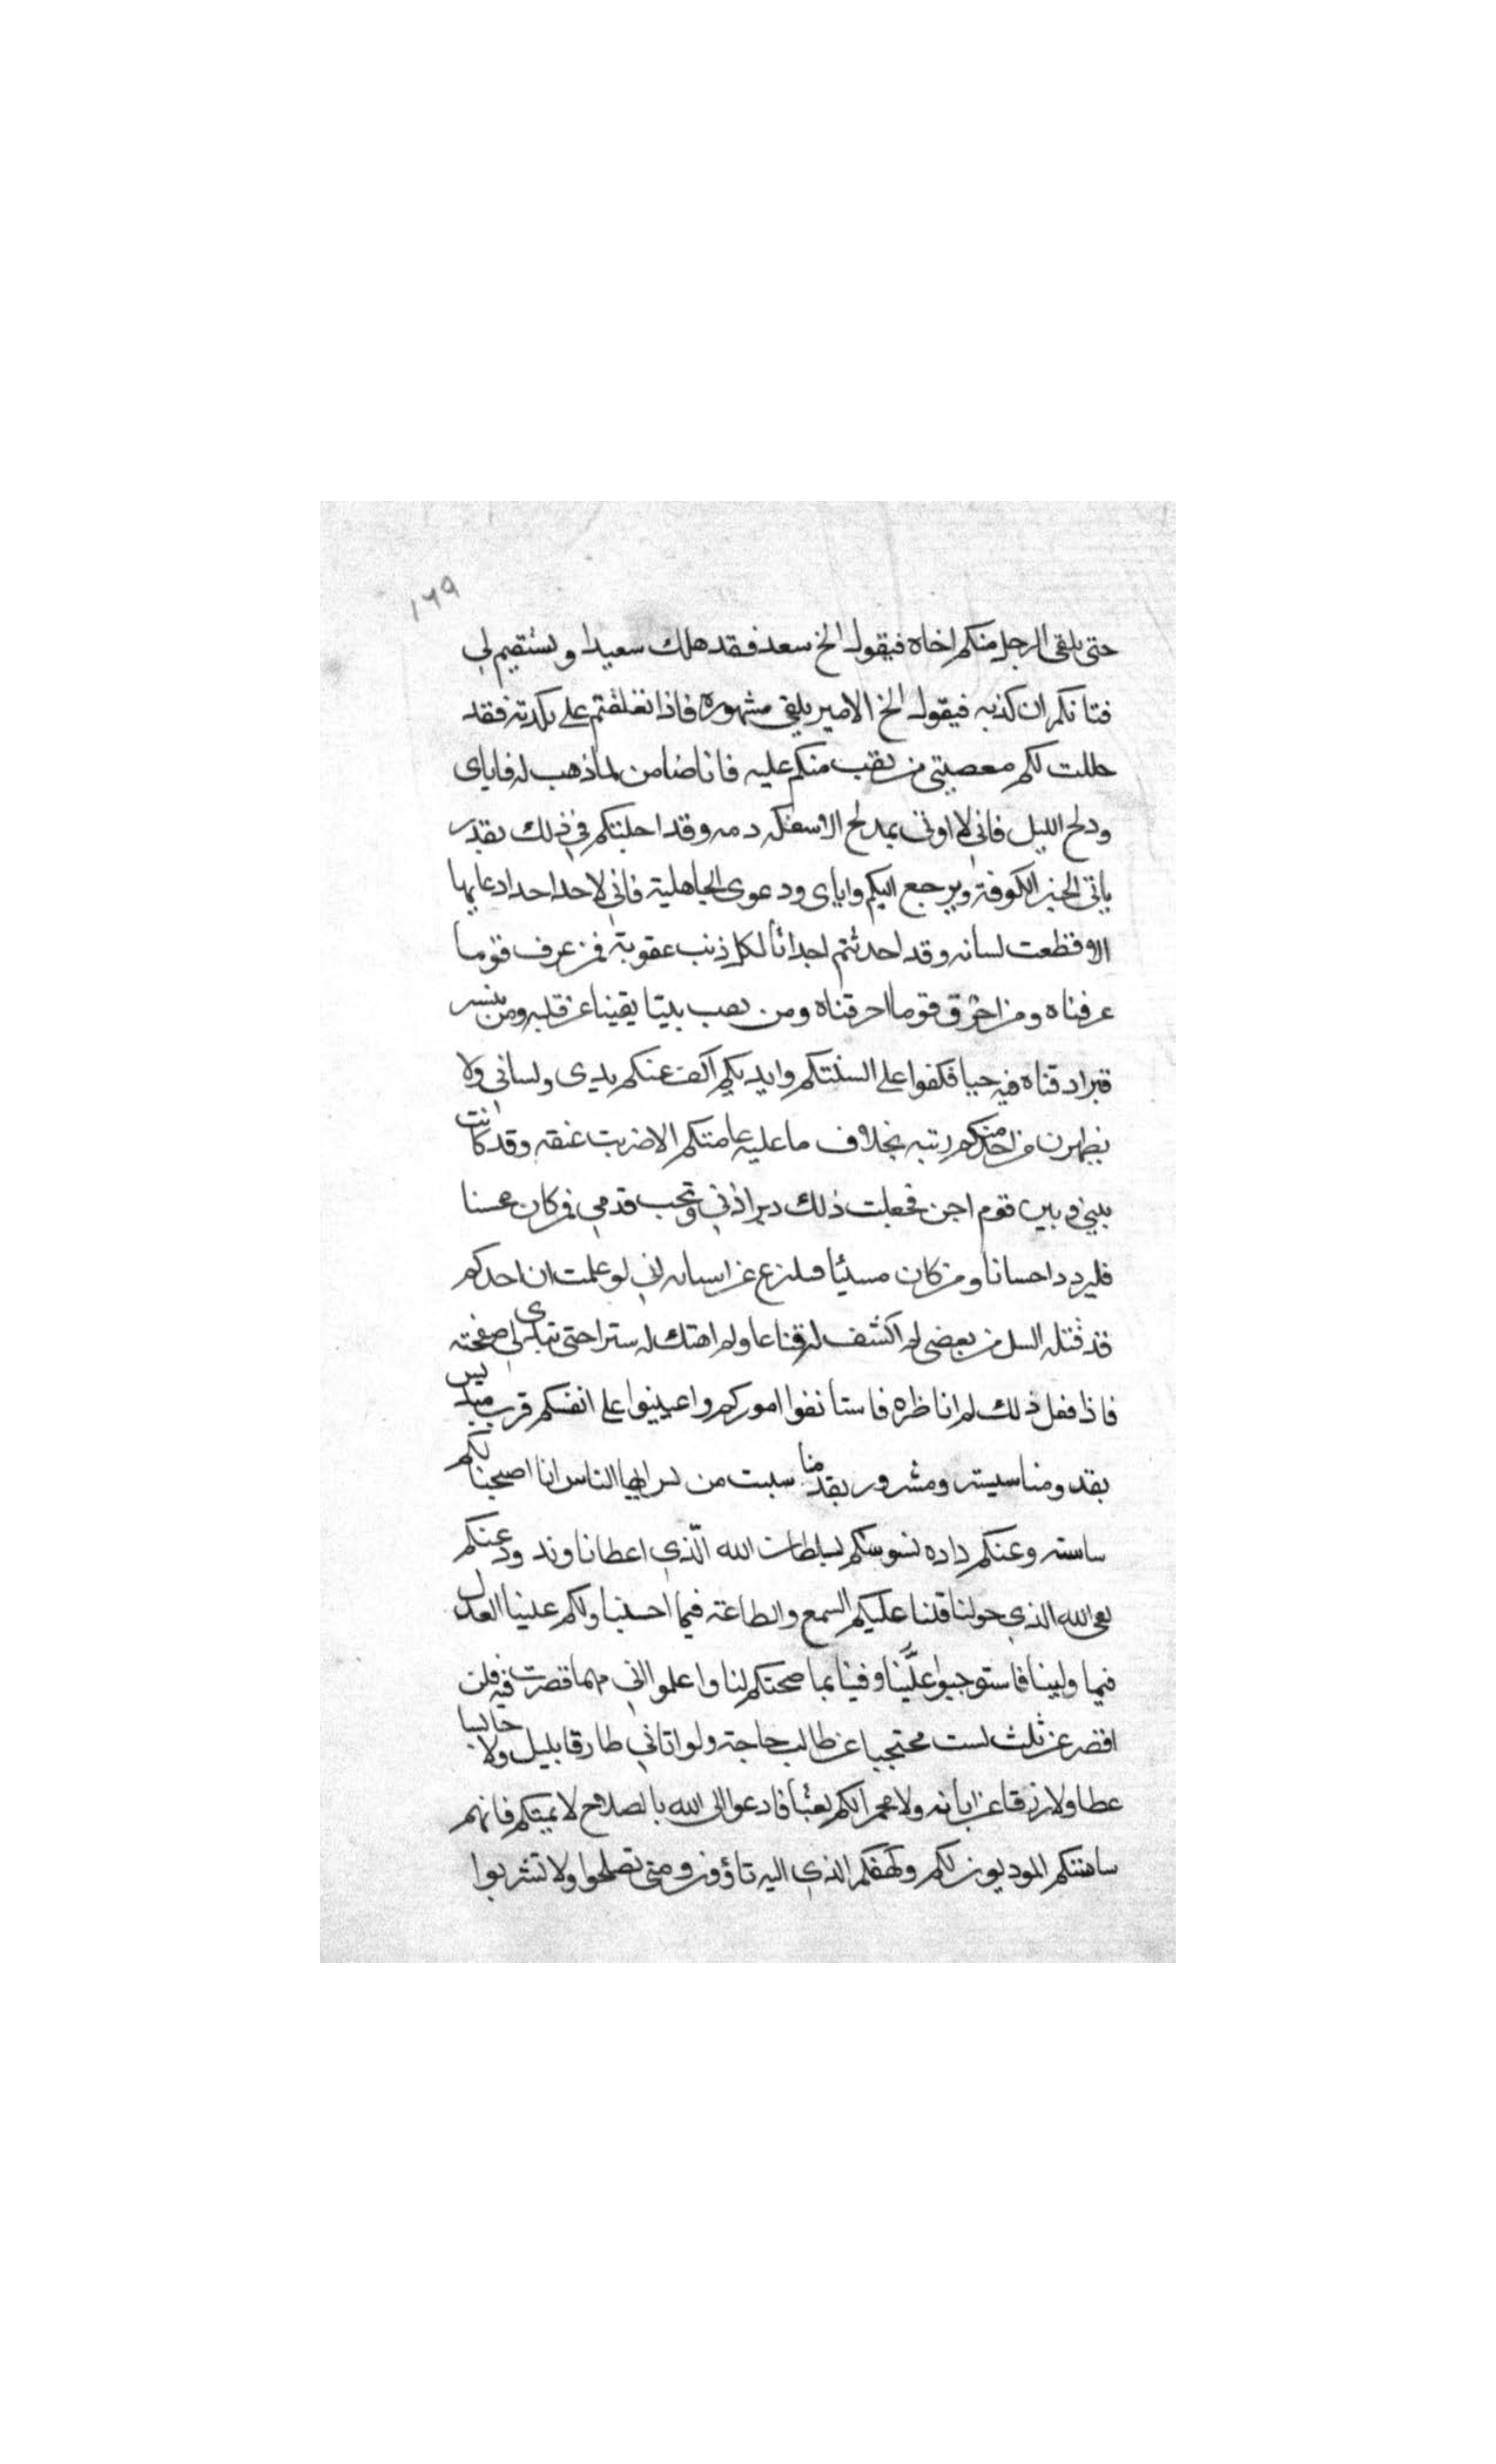 ١٦٩
حتى يلقى الرجل منكم اخاه فيقول الخ سعد فقد هلك سعيدا ويستقيم لي
فتانكم ان كذبه فيقول الخ الامير يلقى مشهورة فاذا تغلفتم على بكدته فقد
حللت لكم معصيتي من نقب منكم عليه فانا ضامن لما ذهب له فاياى
ودلج الليل فاني لا اوتى بمدلج الا سفكه دمه وقد اجلتكم في ذلك بقدر
ياتي الخبر الكوفة ويرجع اليكم واياى ودعوى الجاهلية فاني لا احدا ادعا بها
الا قطعت لسانه وقد احدثتم احداثا لكل ذنب عقوبة فمن عرف قوما
عرفناه ومن احرق قوما احرقناه ومن نصب بيتا يقينا عن قلبه ومن ينسر
قبرا دقناه فيه حيا فكفوا على السنتكم وايديكم اكف عنكم يدى ولساني ولا
يظهرن من احد منكم رتبه بخلاف ما عليه عامتكم الا ضربت عنقه وقد كانت
بيني وبين قوم احن فجعلت ذلك دبر اذني وتحت قدمي فمن كان محسنا
فليردد احسانا ومن كان مسيئا فلنزع عن اساىه اني لو علمت ان احدكم
قد قتله السل من بعضي لم اكشف له قناعا ولم اهتك له سترا حتى تبدى لي صفحته
فاذا فعل ذلك لم اناظره فاستانفوا اموركم واعينوا على انفسكم فرب مبتيس
بقدومنا سيسر ومسرور بقدمنا سيت من ايها الناس انا اصبحنا لكم
ساسه وعنكم داده نسوسكم بسلطان الله الذي اعطانا وند ودعنكم
بعى الله الذي حولنا قلنا عليكم السمع والطاعة فيما احببنا ولكم علينا العدل
فيما ولينا فاستوجبوا علينا وفينا بما صحتكم لنا واعلموا اني مهما قصرت فيه فلن
اقصر عن ثلث لست محتجبا عن طالب حاجة ولو اتاني طارقا بليل ولا حابسا
عطا ولا رزقا عن ابانه ولا مجمرا لكم بعثا فادعوا الى الله بالصلاح لايمتكم فانهم
ساستكم المودبون لكم وكهفكم الذي اليه تاؤون ومتى تصلحوا ولا تشربوا